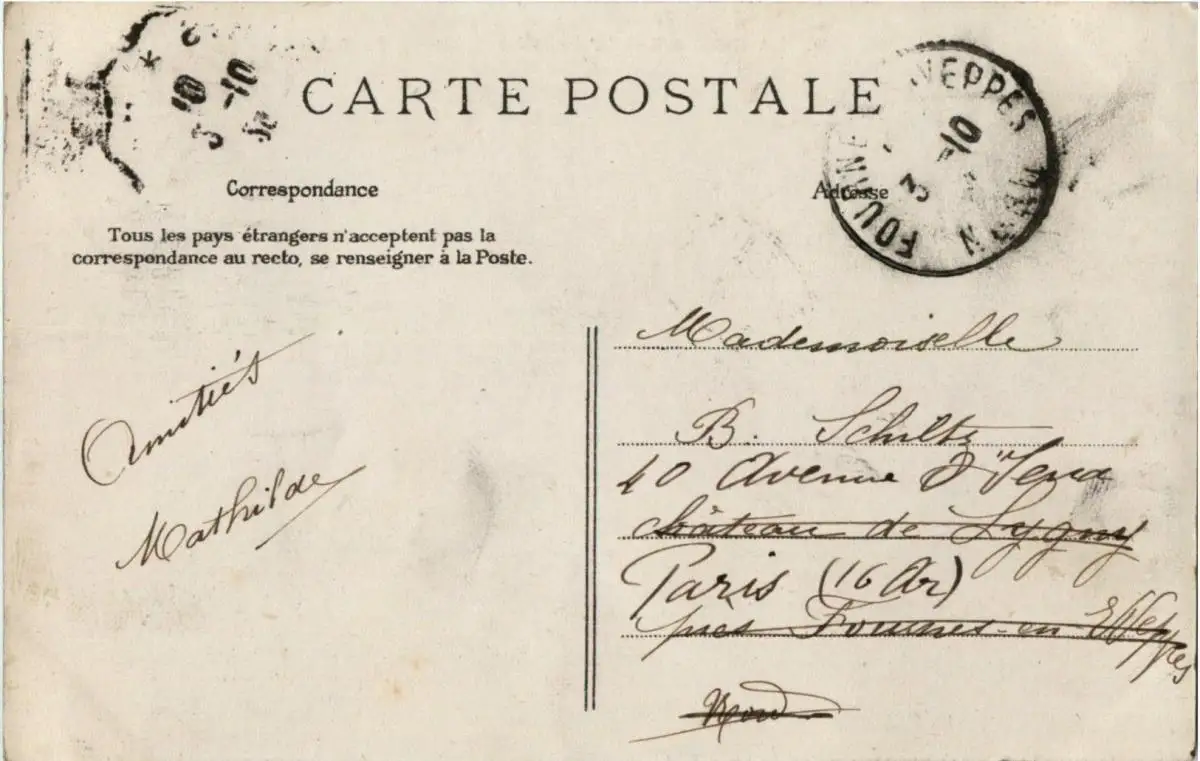 CARTE POSTALE
Correspondance
Adresse
Tous les pays étrangers n'acceptent pas la
correspondance au recto, se renseigner à la Poste.
Amitiés
Mathilde
Mademoiselle
B. Schiltz
40 Avenue d'Iena
château de Lygny
Paris (16 Ar)
près Fournes-en Weppes
Nord
WEPPES
10
3
8 10
-10